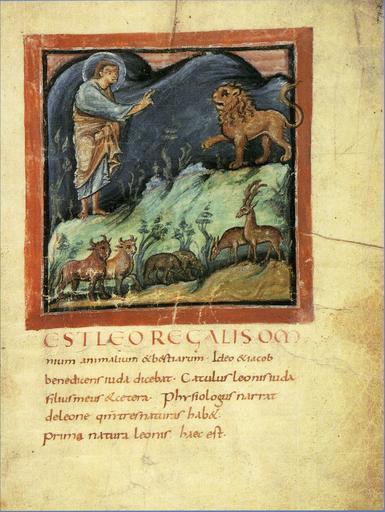 EST LEO REGALIS OM
nium animalium & bestiarum· Ideo & iacob
benedicens iuda dicebat· Catulus leonis iuda
filius meus & cetera· Physiologus narrat
de leone qm tres naturas hab&·
prima natura leonis haec est·